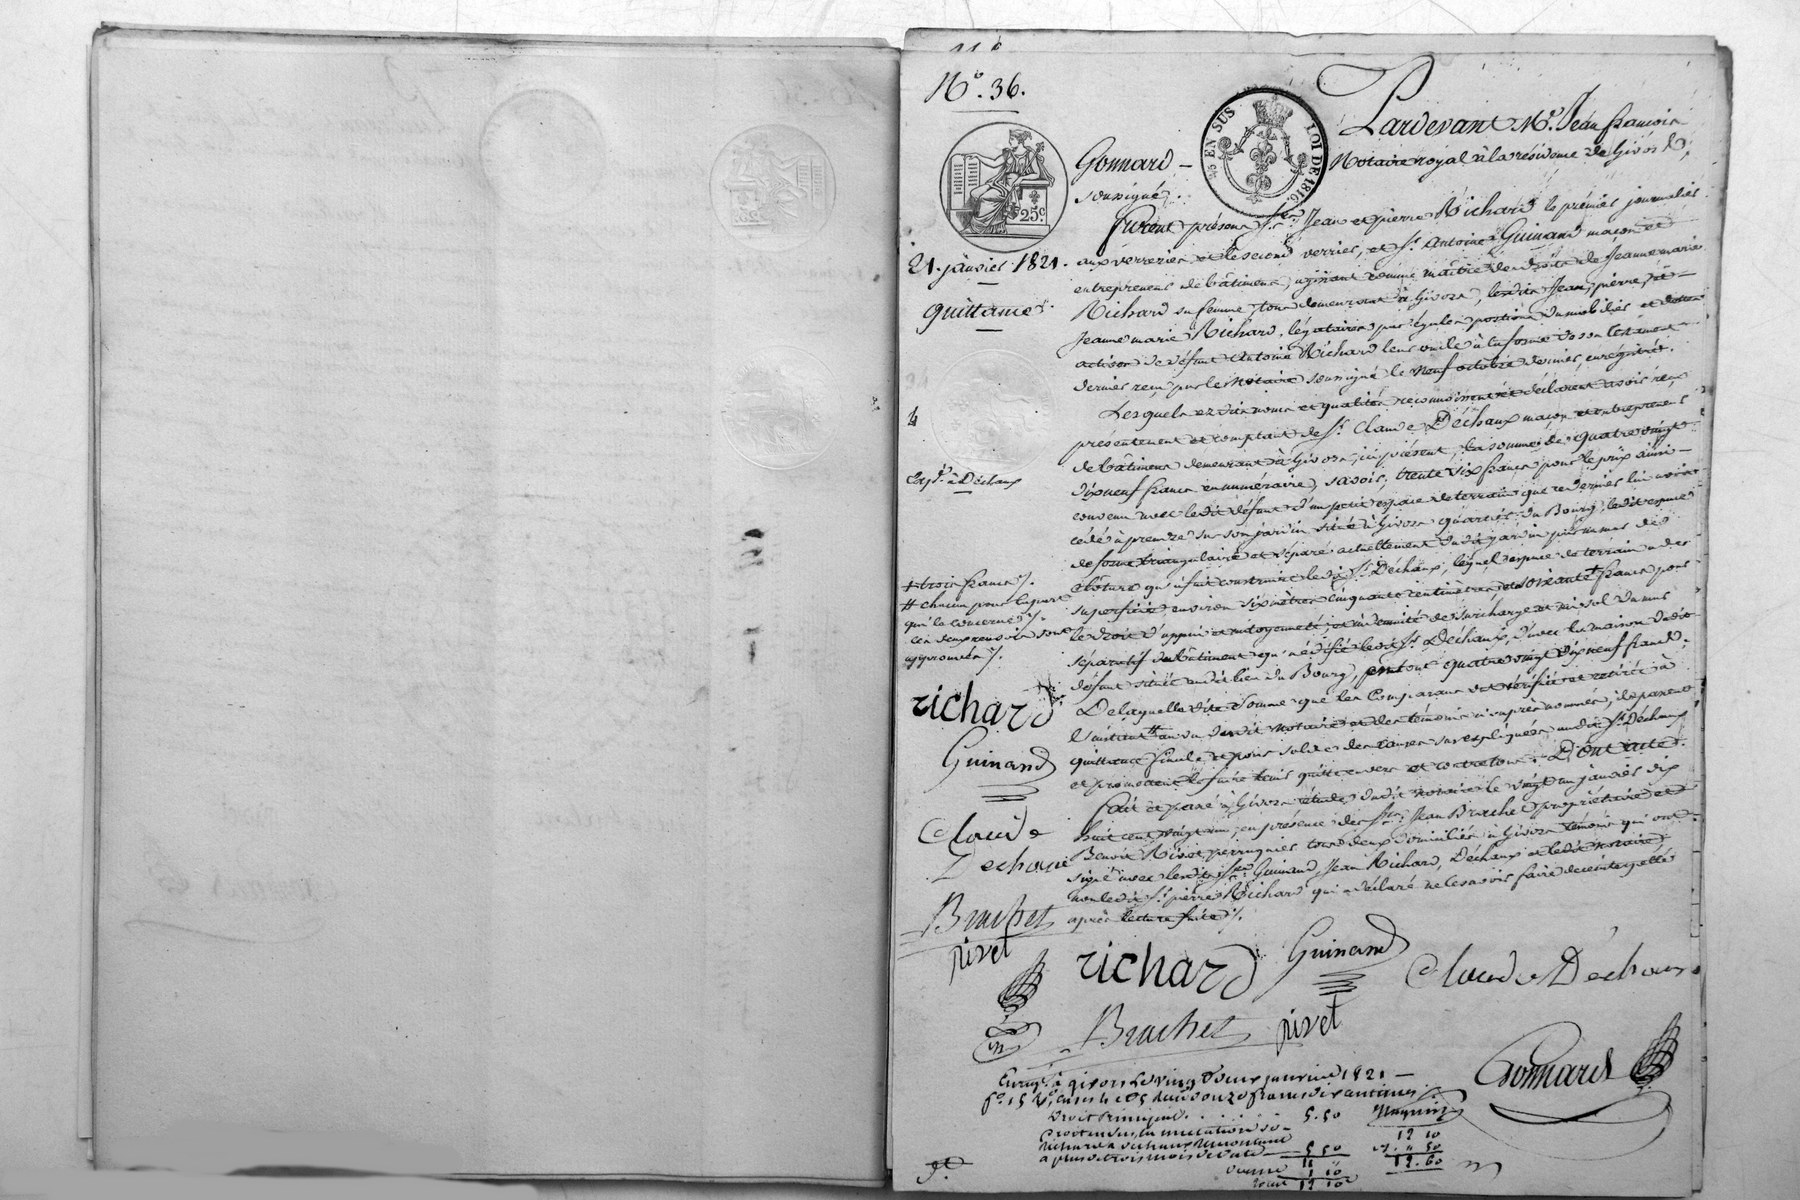 N.º 36.
25 EN SUS
LOI DE 1816.
25c.
Pardevant Me. Jean françois
Gonnard – Notaire royal à la résidence de Givors,
soussigné.
21. janvier 1821.
quittance
furent présens Srs. Jean et pierre Richard le premier journalier
aux verreries et le second verrier, et Sr. Antoine Guinand maçon et
entrepreneur de bâtimens, agissant comme maître des droits de Jeanne marie
Richard sa femme, tous demeurant à Givors, lesdits Jean, pierre, et
Jeanne marie Richard, légataires par égales portions du mobilier et des
actions de défunt Antoine Richard leur oncle à la forme de son testament
dernier reçu par le Notaire soussigné le neuf octobre dernier, enregistré.
Lesquels ez dits noms et qualités reconnoissent et déclarent avoir reçu
présentement et comptant de Sr. Claude Déchaux maçon et entrepreneur
de bâtimens demeurant à Givors, ici présent, la somme de quatre vingt
dix neuf francs en numéraire, savoir; trente six francs pour le prix ainsi
convenu avec ledit défunt d'un petit espace de terrain que ce dernier lui avoit
cédé à prendre sur son jardin situé à Givors quartier du Bourg, ledit espace
de forme triangulaire et séparé actuellement dudit jardin par un mur de
clôture qu'a fait construire ledit Sr. Déchaux, lequel espace de terrain a de
superficie environ six mètres cinquante centimètres et soixante + francs pour
le droit d'appui et mitoyenneté, et indemnité de surcharge et mi-sol du mur
séparatif du bâtiment qu'a édifié ledit Sr. Déchaux, d'avec la maison dudit
défunt située audit lieu du Bourg, en tout quatre vingt dix neuf francs.
De laquelle dite somme que les Comparans ont vérifiée et retirée à
l'instant # au vu dudit notaire et des témoins ci après nommés, ils passent
quittance finale et pour solde des causes sus expliquées audit Sr. Déchaux
et promettent le faire tenir quitte envers et contre tous. Dont acte.
fait et passé à Givors étude dudit notaire le vingt un janvier dix
huit cent vingt un, en présence des Srs. Jean Brachet propriétaire et
Benoit Rivet perruquier tous deux domiciliés à Givors témoins qui ont
signé avec lesdits Srs. Guinand, Jean Richard, Déchaux et ledit notaire,
non ledit Sr. pierre Richard qui a déclaré ne le savoir faire de ce interpellé
après lecture faite.
Expn. à Déchaux
+ trois francs
# chacun pour la part
qui la concerne
approuvés
richard
Guinand
Claude
Dechaux
Brachet
rivet
richard
Guinand
Claude Déchaux
Brachet
rivet
Gonnard
Enregé. à givors le vingt deux janvier 1821
Droit Principal. 5.50
a plus de trois mois de date 5 50
11
1 10
12 10
12 10
50
12.60